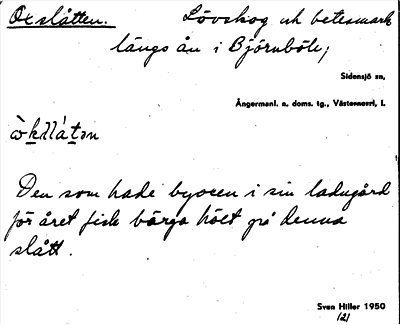 Oxslåtten. Lövskog och betesmark
längs ån i Björnböle,
Sidensjö sn,
Ångermanl. n. doms. tg., Västernorrl. l.
Den som hade byoxen i sin ladugård
för året fick bärga höet på denna
slått.
Sven Hiller 1950
121